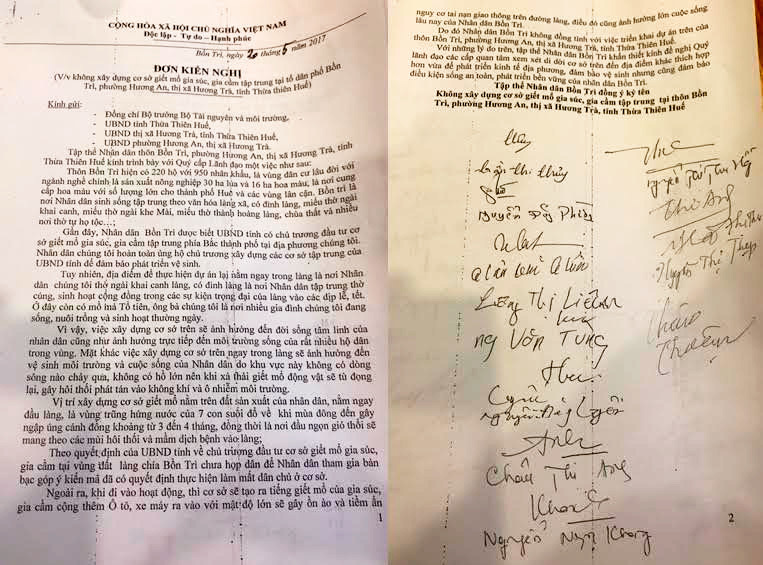 CỘNG HÒA XÃ HỘI CHỦ NGHĨA VIỆT NAM
Độc lập - Tự do – Hạnh phúc
Bồn Trì, ngày 20 tháng 5 năm 2017
ĐƠN KIẾN NGHỊ
(V/v không xây dựng cơ sở giết mổ gia súc, gia cầm tập trung tại tổ dân phố Bồn
Trì, phường Hương An, thị xã Hương Trà, tỉnh Thừa Thiên Huế)
Kính gửi:
- Đồng chí Bộ trưởng Bộ Tài nguyên và môi trường,
- UBND tỉnh Thừa Thiên Huế,
- UBND thị xã Hương Trà,
- UBND phường Hương An, thị xã Hương Trà.
Tập thể Nhân dân thôn Bồn Trì, phường Hương An, thị xã Hương Trà, tỉnh
Thừa Thiên Huế kính trình bày với Quý cấp Lãnh đạo một việc như sau:
Thôn Bồn Trì hiện có 220 hộ với 950 nhân khẩu, là vùng dân cư lâu đời với
ngành nghề chính là sản xuất nông nghiệp 30 ha lúa và 16 ha hoa màu; là nơi cung
cấp hoa màu với số lượng lớn cho thành phố Huế và các vùng lân cận. Bồn trì là
nơi Nhân dân sinh sống tập trung theo văn hóa làng xã, có đình làng, miếu thờ ngài
khai canh, miếu thờ ngài khe Mài, miếu thờ thành hoàng làng, chùa thất và nhiều
nơi thờ tự họ tộc…;
Gần đây, Nhân dân Bồn Trì được biết UBND tỉnh có chủ trương đầu tư cơ
sở giết mổ gia súc, gia cầm tập trung phía Bắc thành phố tại địa phương chúng tôi.
Nhân dân chúng tôi hoàn toàn ủng hộ chủ trương xây dựng các cơ sở tập trung của
UBND tỉnh để đảm bảo phát triển vệ sinh.
Tuy nhiên, địa điểm để thực hiện dự án lại nằm ngay trong làng là nơi Nhân
dân chúng tôi thờ ngài khai canh làng, có đình làng là nơi Nhân dân tập trung thờ
cúng, sinh hoạt cộng đồng trong các sự kiện trọng đại của làng vào các dịp lễ, tết.
Ở đây còn có mồ mả Tổ tiên, ông bà chúng tôi là nơi nhiều gia đình chúng tôi đang
sống, nuôi trồng và sinh hoạt thường ngày.
Vì vậy, việc xây dựng cơ sở trên sẽ ảnh hưởng đến đời sống tâm linh của
nhân dân cũng như ảnh hưởng trực tiếp đến môi trường sống của rất nhiều hộ dân
trong vùng. Mặt khác việc xây dựng cơ sở trên ngay trong làng sẽ ảnh hưởng đến
vệ sinh môi trường và cuộc sống của Nhân dân do khu vực này không có dòng
sông nào chảy qua, không có hồ lớn nên khi xả thải giết mổ động vật sẽ tù đọng
lại, gây hôi thối phát tán vào không khí và ô nhiễm môi trường.
Vị trí xây dựng cơ sở giết mổ nằm trên đất sản xuất của nhân dân, nằm ngay
đầu làng, là vùng trũng hứng nước của 7 con suối đổ về khi mùa đông đến gây
ngập úng cánh đồng khoảng từ 3 đến 4 tháng, đồng thời là nơi đầu ngọn gió thổi sẽ
mang theo các mùi hôi thối và mầm dịch bệnh vào làng;
Theo quyết định của UBND tỉnh về chủ trương đầu tư cơ sở giết mổ gia súc,
gia cầm tại vùng đất làng chía Bồn Trì chưa họp dân để Nhân dân tham gia bàn
bạc góp ý kiến mà đã có quyết định thực hiện làm mất dân chủ ở cơ sở.
Ngoài ra, khi đi vào hoạt động, thì cơ sở sẽ tạo ra tiếng giết mổ của gia súc,
gia cầm cộng thêm Ô tô, xe máy ra vào với mật độ lớn sẽ gây ồn ào và tiềm ẩn
1
nguy cơ tai nạn giao thông trên đường làng, điều đó cũng ảnh hưởng lớn cuộc sống
lâu nay của Nhân dân Bồn Trì.
Do đó Nhân dân Bồn Trì không đồng tình với việc triển khai dự án trên của
thôn Bồn Trì, phường Hương An, thị xã Hương Trà, tỉnh Thừa Thiên Huế.
Với những lý do trên, tập thể Nhân dân Bồn Trì khẩn thiết kính đề nghị Quý
lãnh đạo các cấp quan tâm xem xét di dời cơ sở trên đến địa điểm khác thích hợp
hơn vừa để phát triển kinh tế địa phương, đảm bảo vệ sinh nhưng cũng đảm bảo
điều kiện sống an toàn, phát triển bền vững của nhân dân Bồn Trì.
Tập thể Nhân dân Bồn Trì đồng ý ký tên
Không xây dựng cơ sở giết mổ gia súc, gia cầm tập trung tại thôn Bồn
Trì, phường Hương An, thị xã Hương Trà, tỉnh Thừa Thiên Huế
Anh
Châu Thị Ang
Nguyễn Ngọc Khang
Nguyễn Thị Thẹp
2